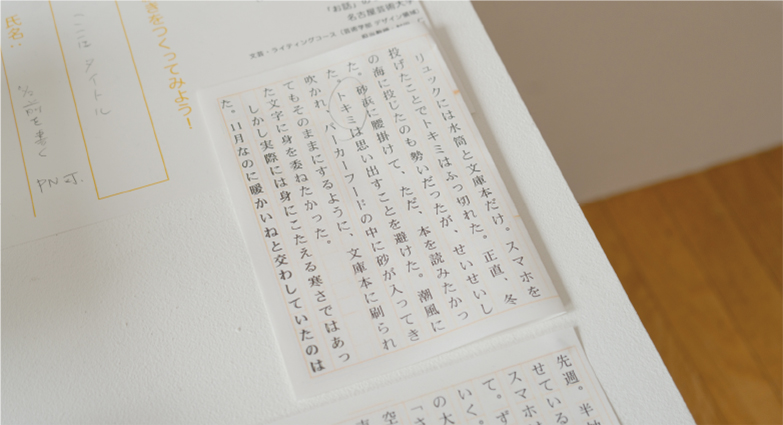 「お話」の
名古屋芸術大学
文芸・ライティングコース（芸術学部 デザイン領域）
きをつくってみよう！
ここは タイトル
氏名：
名前を書く
PN可.
リュックには水筒と文庫本だけ。スマホを
投げたことでトキミはふっ切れた。正直、冬
の海に投じたのも勢いだったが、せいせいし
た。砂浜に腰掛けて、ただ、本を読みたかっ
た。トキミは思い出すことを避けた。潮風に
吹かれ、パーカーフードの中に砂が入ってき
てもそのままにするように、文庫本に刷られ
た文字に身を委ねたかった。
しかし実際には身にこたえる寒さではあっ
た。11月なのに暖かいねと交わしていたのは
先週。半
せている
スマホ
て。ず
いく。
の大
「さ
空